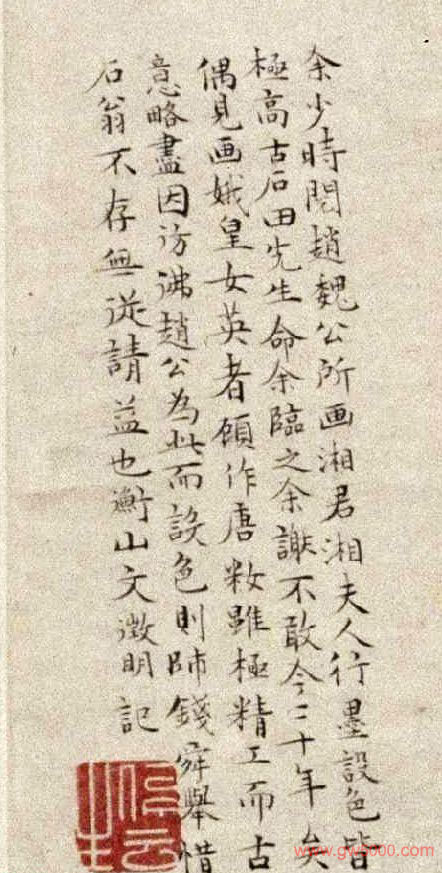 余少時閱趙魏公所画湘君湘夫人行墨設色皆
極高古石田先生命余臨之余謝不敢今二十年矣
偶見画娥皇女英者顧作唐妝雖極精工而古
意略盡因访彿趙公為此而設色則師錢舜舉惜
石翁不存無從請益也衡山文徵明記
www.gw5000.com